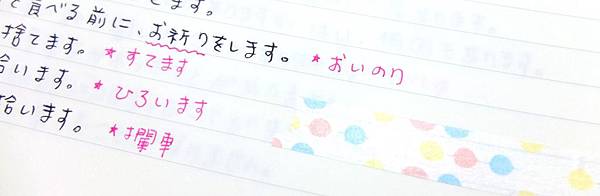 てます。
で食べる前に、お祈りをします。 *おいのり
捨てます。 *すてます
拾います。 *ひろいます
拾います。 *攔車